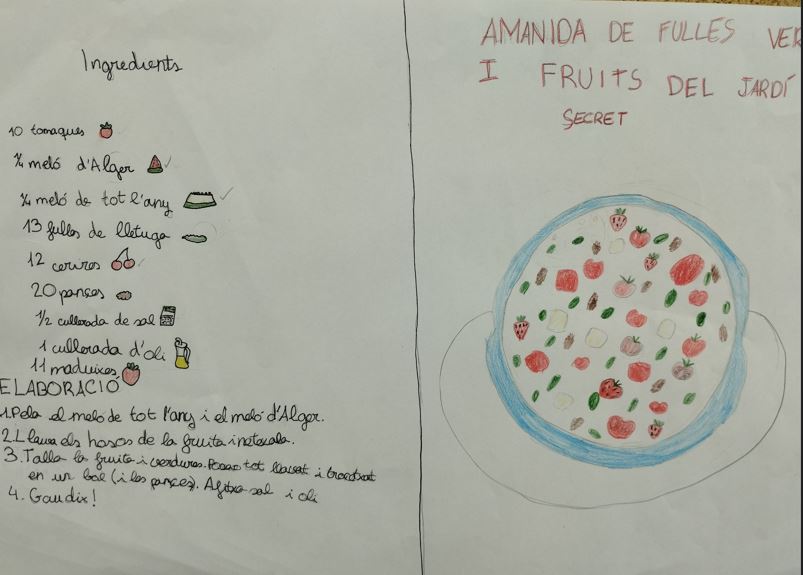 Ingredients
10 tomaques
¼ meló d'Alger
¼ meló de tot l'any
13 fulles de lletuga
12 cerires
20 panses
1/2 cullerada de sal
1 cullerada d'oli
11 maduixes
ELABORACIÓ
1. Pela el meló de tot l'any i el meló d'Alger.
2. Lleva els hosos de la fruita
3. Talla la fruita i verdures. tot i
en un bol (i les panses). sal i oli
4. Gaudix!
AMANIDA DE FULLES VER
I FRUITS DEL JARDÍ
SECRET